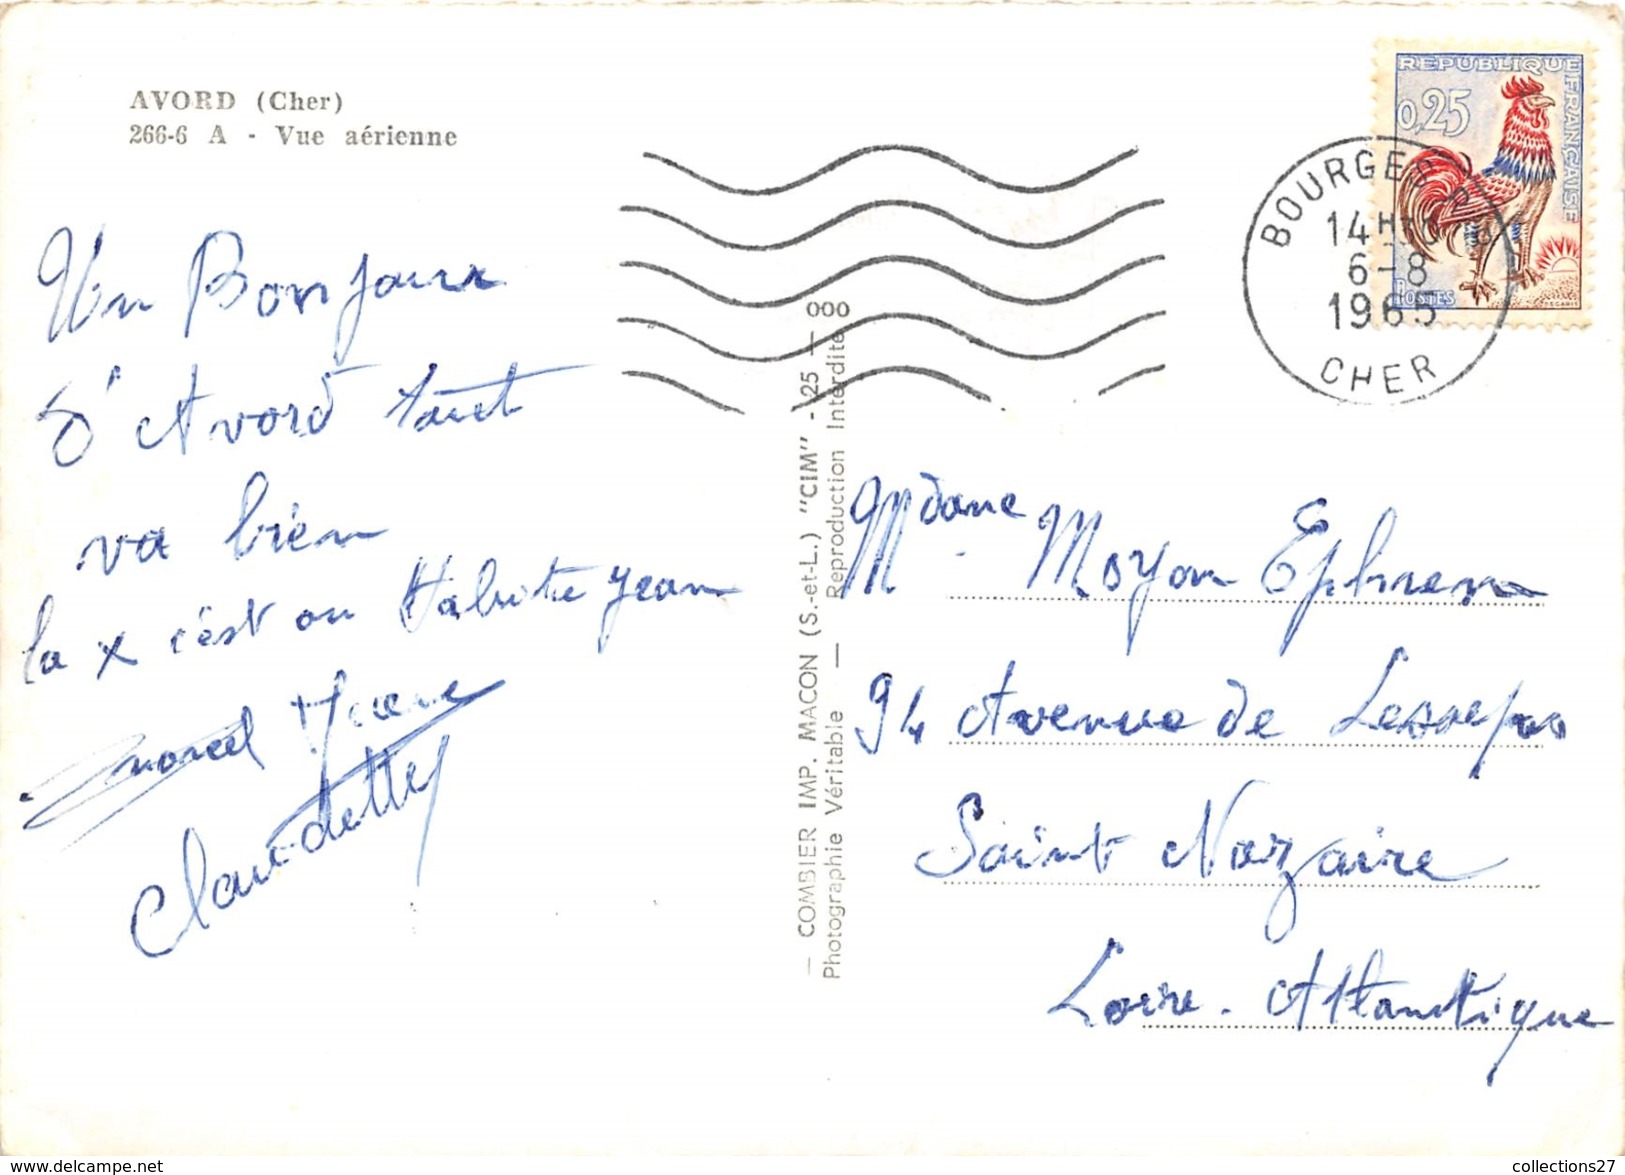 AVORD (Cher)
266-6 A - Vue aérienne
REPUBLIQUE FRANÇAISE
0,25
POSTES
BOURGES
14H
6-8
1965
CHER
Un Bonjour
d'Avord tout
va bien
la x c'est ou Habite Jean
Marcel
Claudette
— COMBIER IMP. MACON (S.-et-L.) "CIM" - 25 — 000
Photographie Véritable — Reproduction Interdite
Mdame Moyon Ephrem
94 Avenue de Lesseps
Saint Nazaire
Loire-Atlantique
collections27